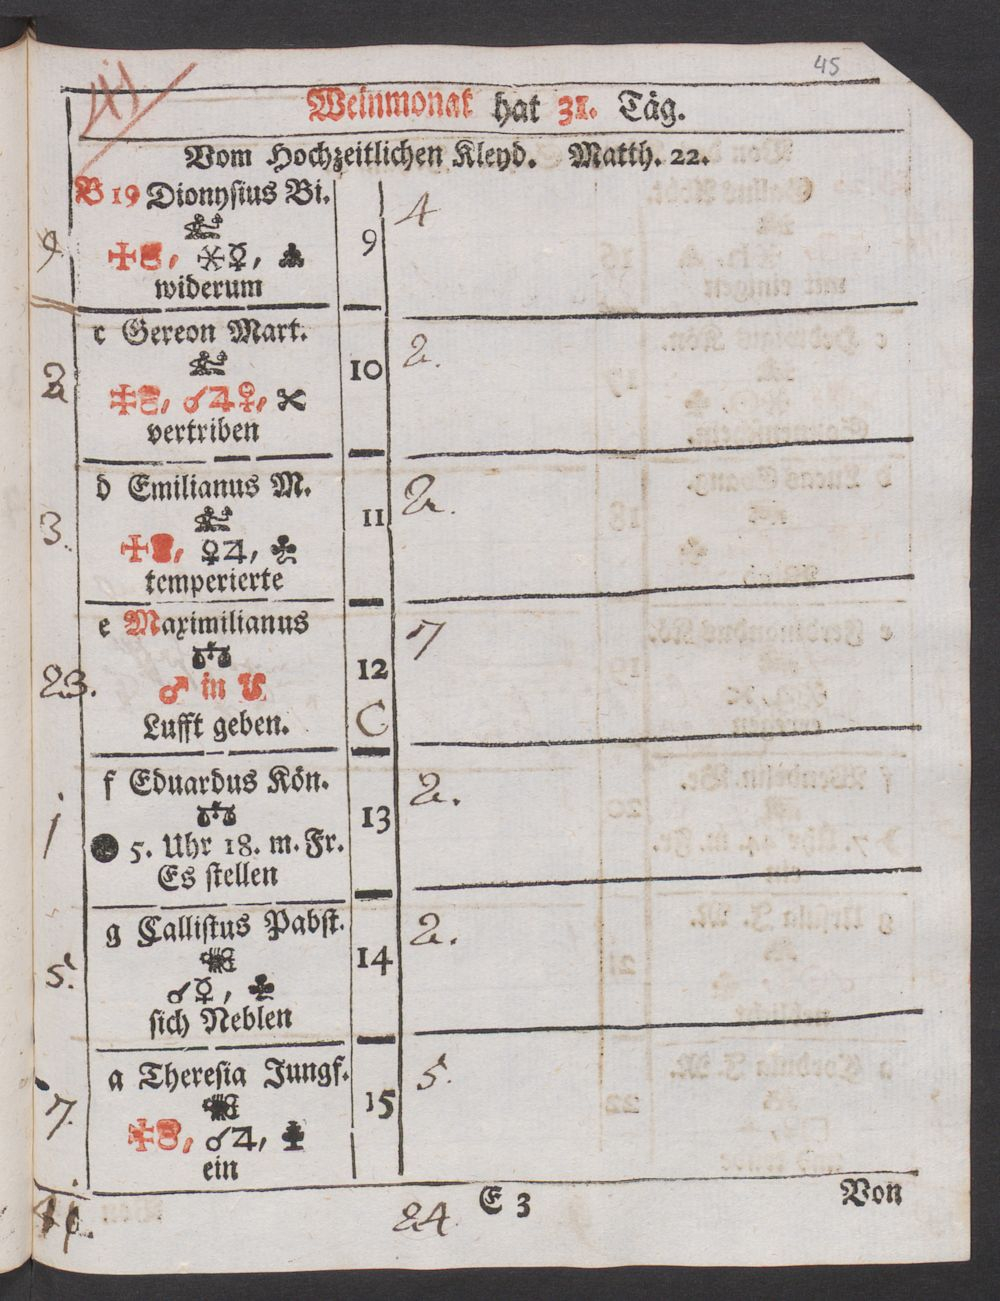 45
41
Weinmonat hat 31. Täg.
Vom Hochzeitlichen Kleyd. Matth. 22.
B 19 Dionysius Bi. 9 4
9
✶☿, ♣
widerum
c Gereon Mart. 10 2.
2
☌♃♀,
vertriben
d Emilianus M. 11 2.
3.
♀♃, ♣
temperierte
e Maximilianus 12 7
23.
♂ in
Lufft geben. C
f Eduardus Kön. 13 2.
1
● 5. Uhr 18. m. Fr.
Es stellen
g Callistus Pabst. 14 2.
5.
☌☿, ♣
sich Neblen
a Theresia Jungf. 15 5.
7.
☌♃,
ein
E 3 Von
24